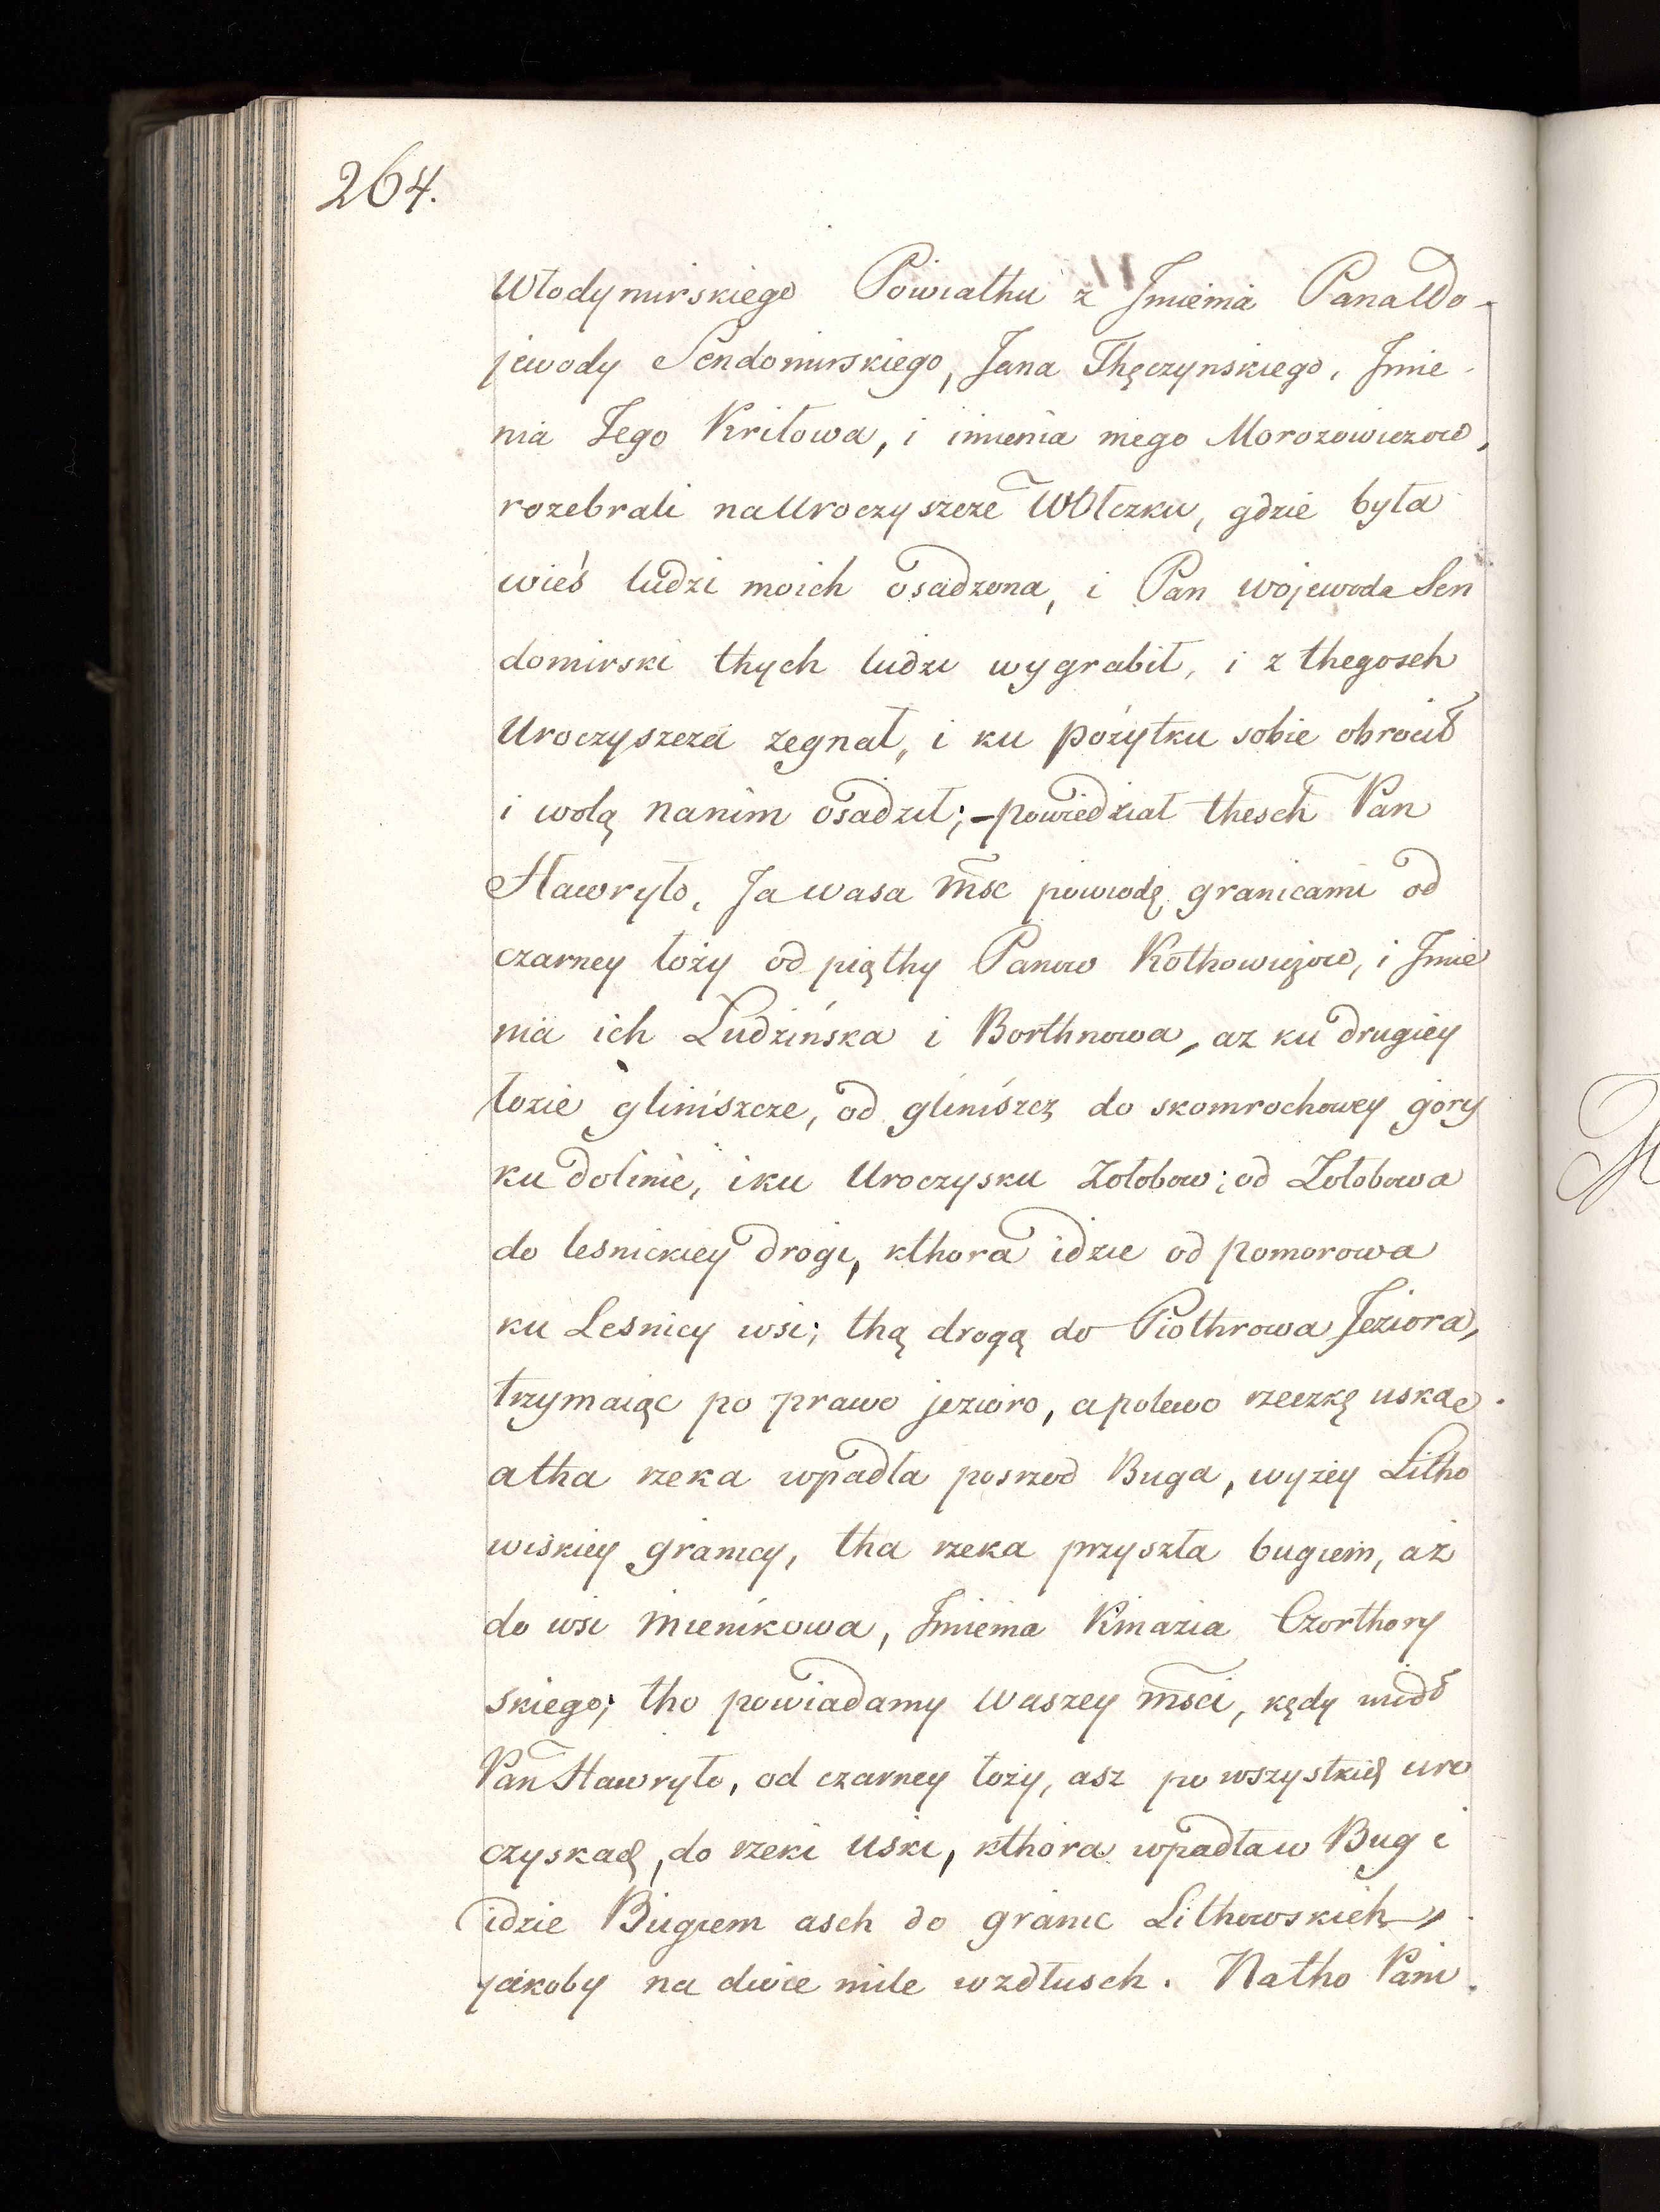 264.
Włodymirskiego Powiathu z Jmienia Pana Wo-
jewody Sendomirskiego, Jana Thęczynskiego, Jmie-
nia Jego Kriłowa, i imienia mego Morozowiczow,
rozebrali na Uroczyszcze Wołczku, gdzie była
wieś ludzi moich osadzona, i Pan wojewoda Sen
domirski thych ludzi wygrabił, i z thegosch
Uroczyszcza zegnał, i ku pożytku sobie obrocił
i wolą nanim osadził; – powiedział thesch Pan
Hawryło, Ja wasa m̃sc powiodę granicami od
czarney łozy od piąthy Panow Kothowiczow, i Jmie
nia ich Ludzińska i Borthnowa, az ku drugiey
łozie gliniszcze, od gliniszcz do skomrochowey góry
ku dolinie, i ku Uroczysku Zołobow; od Zołobowa
do lesnickiey drogi, kthora idzie od pomorowa
ku Lesnicy wsi; thą drogą do Piothrowa Jeziora,
trzymaiąc po prawo jezioro, a polewo rzeczkę uskąę.
a tha rzeka wpadła posrzod Buga, wyzey Litho
wiskiey granicy, tha rzeka przyszła bugiem, aż
do wsi Mienikowa, Jmienia Kniazia Czorthory
skiego; tho powiadamy Waszey m̃sci, kędy wiódł
Pan Hawryło, od czarney łozy, asz po wszystkię uro
czyskaę, do rzeki Uski, kthora wpadła w Bug i
idzie Bugiem asch do granic Lithowskich,
jakoby na dwie mile wzdłusch. Natho Pani